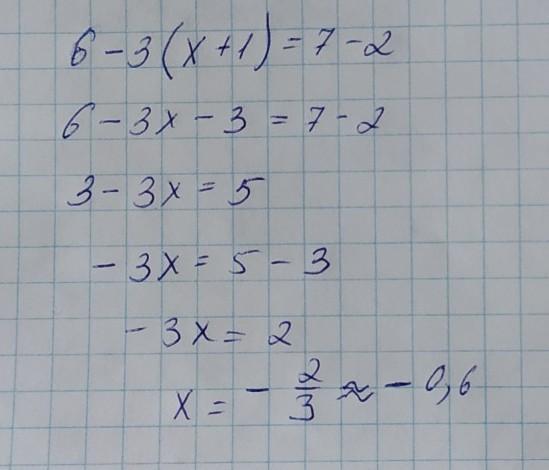 6 - 3(x+1) = 7 - 2
6 - 3x - 3 = 7 - 2
3 - 3x = 5
- 3x = 5 - 3
- 3x = 2
x = - 2/3 ≈ - 0,6